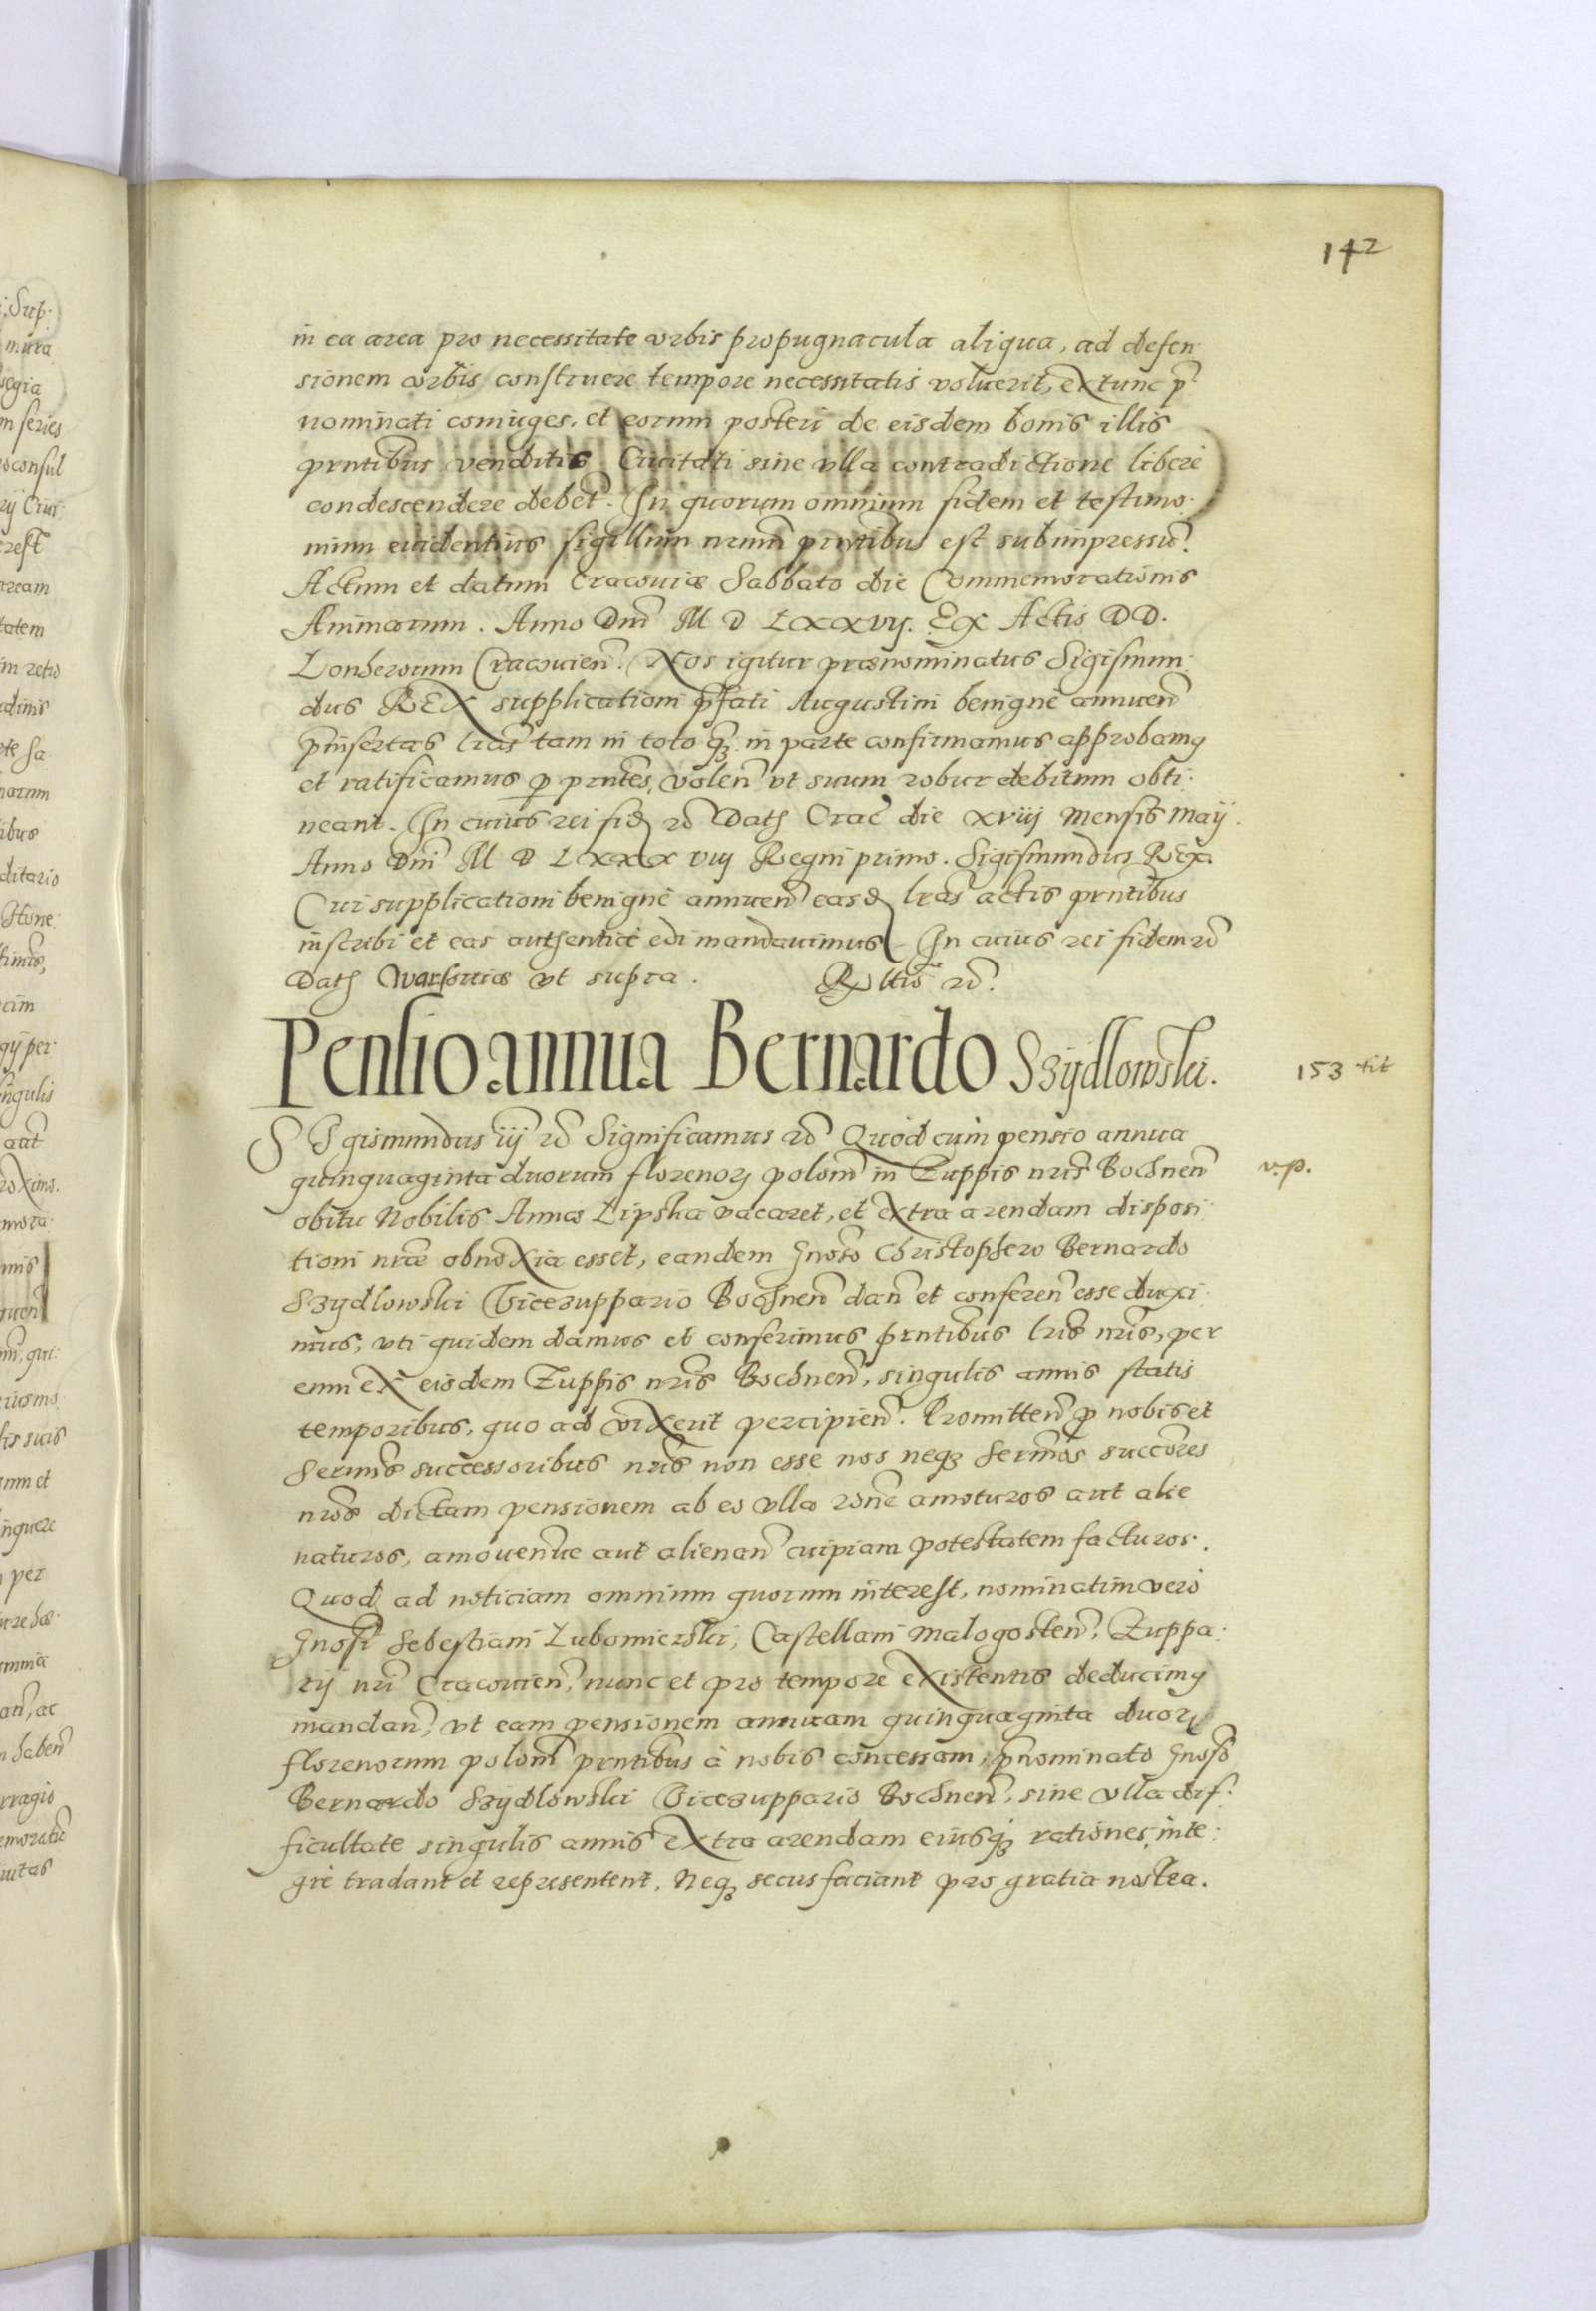 142
in ea area pro necessitate urbis propugnacula aliqua, ad defen-
sionem urbis construere tempore necessitatis voluerit, extunc p̃
nominati coniuges, et eorum posteri de eisdem bonis illis
pñtibus venditis Civitati sine ulla contradictione libere
condescendere debet̃. In quorum omnium fidem et testimo-
nium evidentius sigillum nrũm pñtibus est subimpressũ.
Actum et datum Cracoviæ Sabbato die Commemorationis
Animarum. Anno Dñi M D LXXVII. Ex Actis DD.
Lonherorum Cracovieñ. Nos igitur prænominatus Sigismun-
dus REX supplicationi p̃fati Augustini benignè annueñ
p̃insertas lrãs tam in toto q̃ in parte confirmamus approbamꝰ
et ratificamus ꝑ pñtes, voleñ ut suum robur debitum obti-
neant. In cuius rei fid rc̃ Dat Crac̃ die xviij Mensis Maij.
Anno Dñi M D LXXX viij Regni primo. Sigismundus REX.
Cui supplicationi benignè annueñ easd lrãs actis pñtibus
inscribi et eas authenticè edi mandavimus. In cuius rei fidem rc̃
Dat Warsoviæ ut supra. Rltio rc̃.
Pensio annua Bernardo Szydlowski.
153 tit
SIgismundus iij rc̃ Significamus rc̃ Quod cum pensio annua
quinquaginta duorum florenoꝝ poloñ in Zuppis nrĩs Bochneñ
v. p.
obitu Nobilis Annæ Lipska vacaret, et extra arendam disposi-
tioni nrãe obnoxia esset, eandem Gnoso Christophero Bernardo
Szydlowski Vicezuppario Bochneñ dañ et confereñ esse duxi-
mus, uti quidem damus et conferimus pñtibus lrĩs nrĩs, per
eum ex eisdem Zuppis nrĩs Bochneñ, singulis annis statis
temporibus, quo ad vixerit percipieñ. Promitteñ ꝓ nobis et
Serm̃is successoribus nrĩs non esse nos neqꝫ Serm̃os succõres
nrõs dictam pensionem ab eo ulla rõne amoturos aut alie
naturos, amovendive aut alienañ cuipiam potestatem facturos.
Quod ad noticiam omnium quorum interest, nominatim verò
Gnosi Sebestiani Lubomierski, Castellani Malogosteñ, Zuppa-
rij nrĩ Cracovieñ, nunc et pro tempore existentis deducimꝰ
mandañ, ut eam pensionem annuam quinquaginta duoꝝ
florenorum poloñ pñtibus à nobis concessam, p̃nominato Gnoso
Bernardo Szydlowski Vicezuppario Bochneñ, sine ulla dif-
ficultate singulis annis extra arendam eiusqꝫ rationes, inte-
grè tradant et repræsentent. Neqꝫ secus faciant pro gratia nostra.